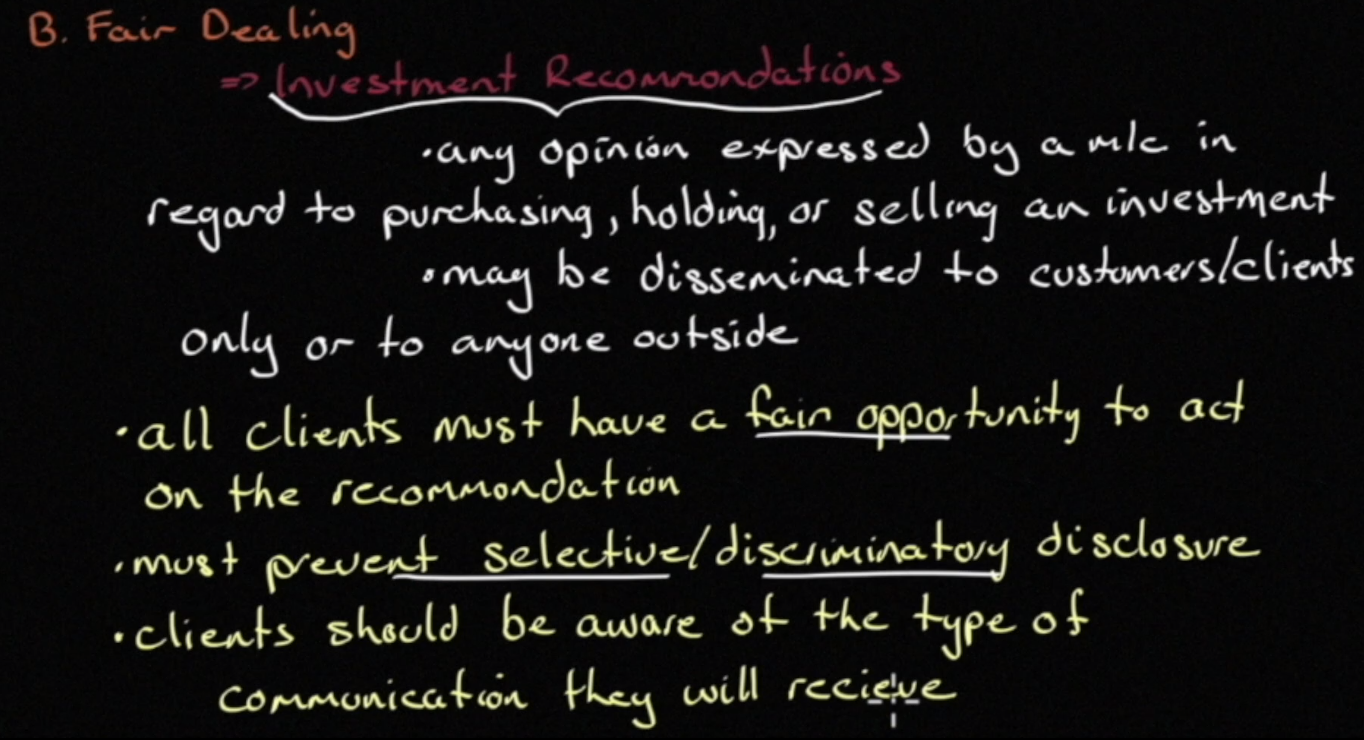 B. Fair Dealing
=> Investment Recommondations
•any opinion expressed by a m/c in
regard to purchasing, holding, or selling an investment
•may be disseminated to customers/clients
only or to anyone outside
•all clients must have a fair opportunity to act
on the recommondation
•must prevent selective/discriminatory disclosure
•clients should be aware of the type of
communication they will recieve